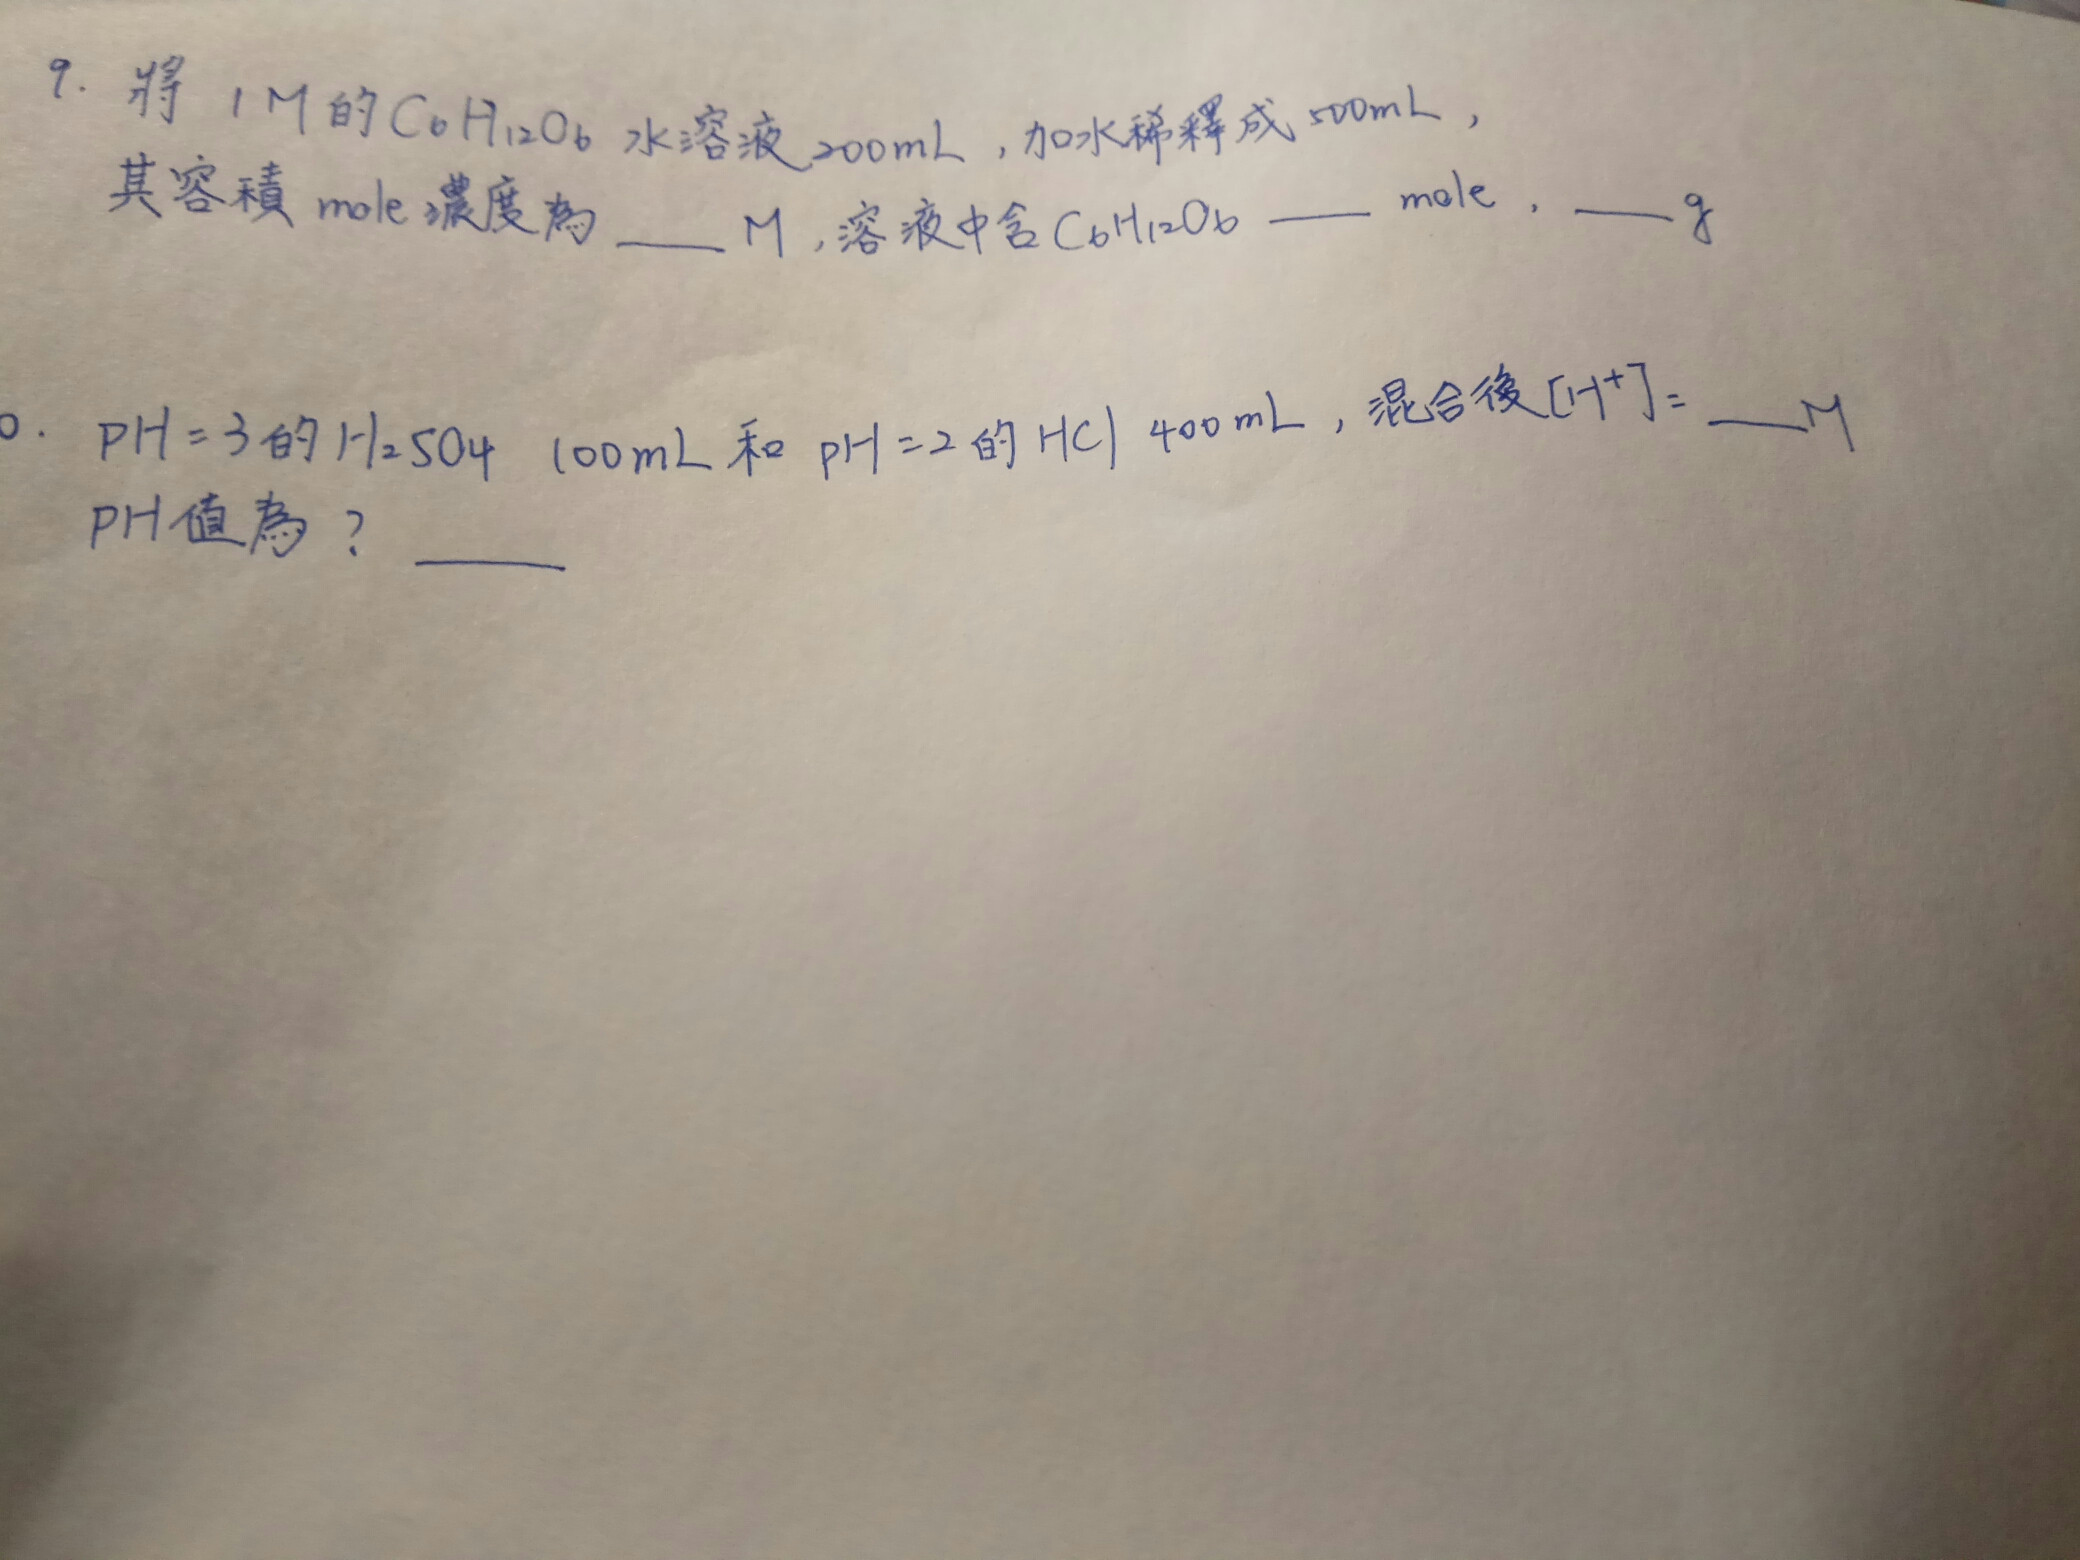 9. 將 1M的C6H12O6 水溶液200mL,加水稀釋成500mL,
其容積mole濃度為 ___ M,溶液中含C6H12O6 ___ mole, ___g
0. PH=3的H2SO4 100mL 和 pH=2的HCl 400mL,混合後[H+]= ___M
PH值為? ___